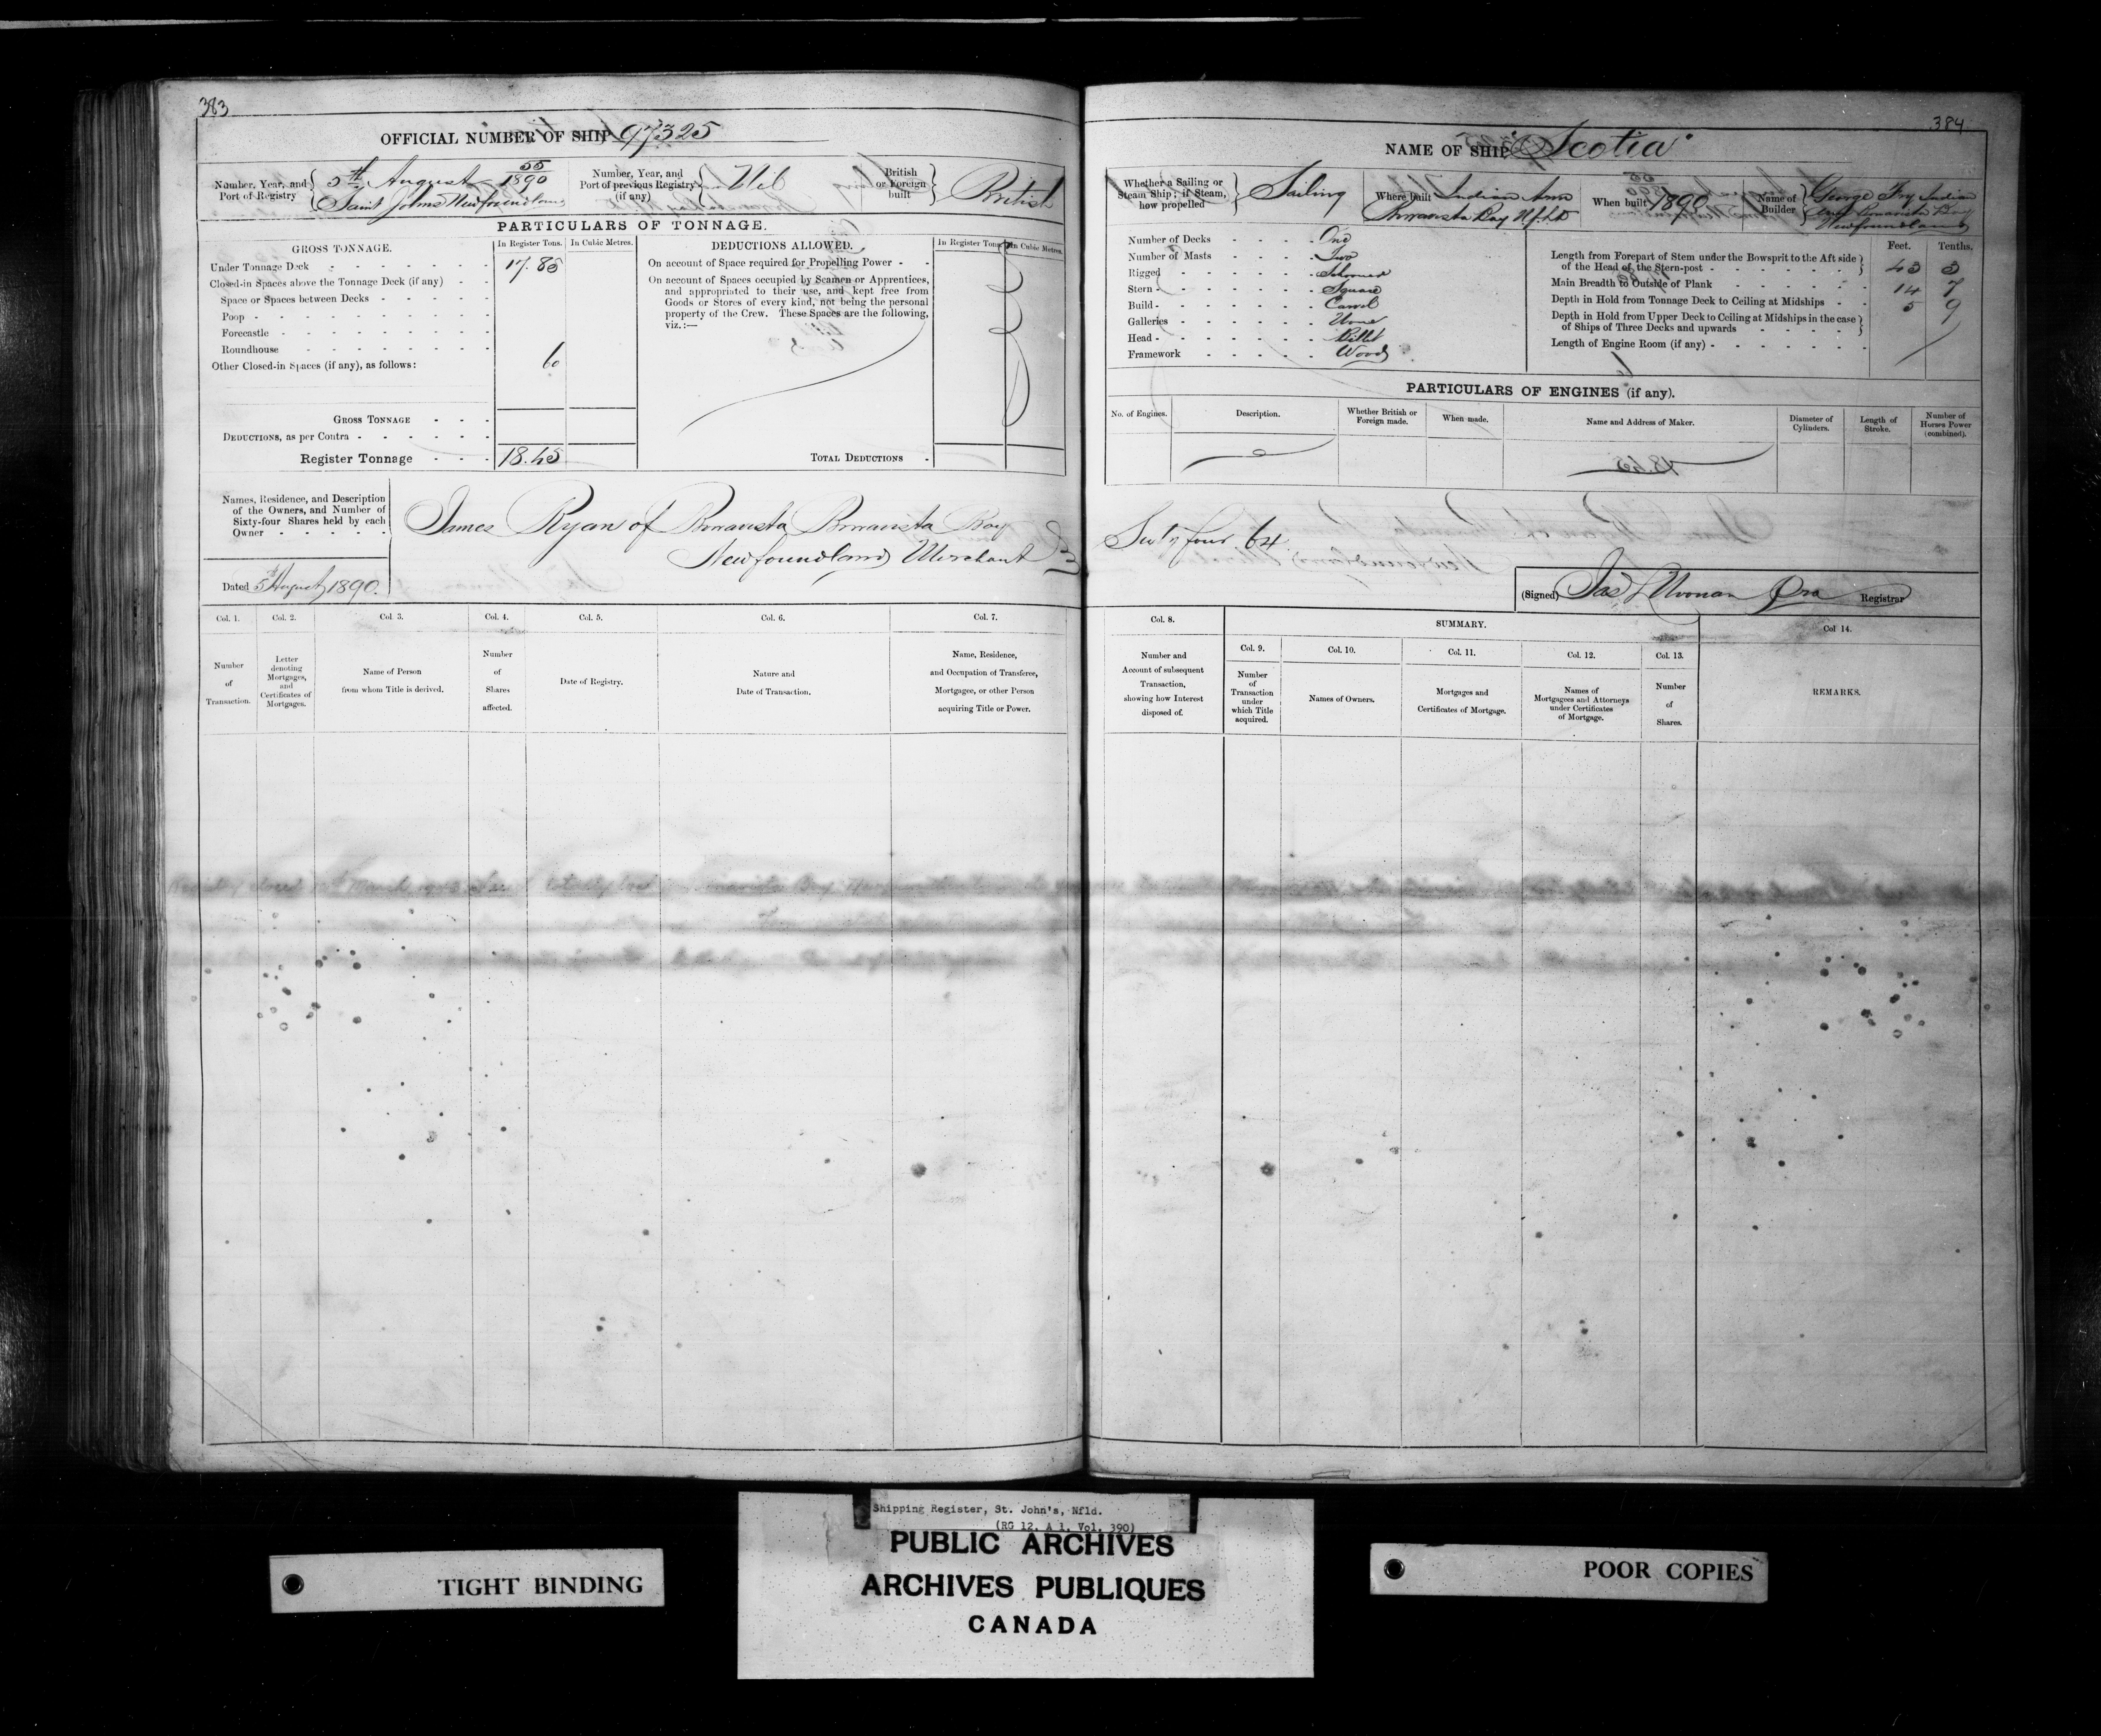 383
OFFICIAL NUMBER OF SHIP 97325
Number, Year, and Port of Registry
5th August 55/1890
Saint Johns Newfoundland
Number, Year, and Port of previous Registry (if any)
Nil
British or Foreign built
British
PARTICULARS OF TONNAGE.
GROSS TONNAGE.
In Register Tons.
In Cubic Metres.
DEDUCTIONS ALLOWED.
In Register Tons.
In Cubic Metres.
Under Tonnage Deck 17.85
Closed-in Spaces above the Tonnage Deck (if any)
Space or Spaces between Decks
Poop
Forecastle
Roundhouse
Other Closed-in Spaces (if any), as follows: 60
GROSS TONNAGE
DEDUCTIONS, as per Contra
Register Tonnage 18.45
On account of Space required for Propelling Power
On account of Spaces occupied by Seamen or Apprentices,
and appropriated to their use, and kept free from
Goods or Stores of every kind, not being the personal
property of the Crew. These Spaces are the following,
viz.:—
TOTAL DEDUCTIONS
Names, Residence, and Description
of the Owners, and Number of
Sixty-four Shares held by each
Owner
James Ryan of Bonavista Bonavista Bay
Newfoundland Merchant
Dated 5 August 1890.
Col. 1.
Number of Transaction.
Col. 2.
Letter denoting Mortgages, and Certificates of Mortgages.
Col. 3.
Name of Person from whom Title is derived.
Col. 4.
Number of Shares affected.
Col. 5.
Date of Registry.
Col. 6.
Nature and Date of Transaction.
Col. 7.
Name, Residence, and Occupation of Transferee, Mortgagee, or other Person acquiring Title or Power.
384
NAME OF SHIP "Scotia"
Whether a Sailing or Steam Ship; if Steam, how propelled
Sailing
Where built
Indian Arm
Bonavista Bay Nfld
When built 1890
Name of Builder
George Fry Indian
Arm Bonavista Bay
Newfoundland
Number of Decks One
Number of Masts Two
Rigged Schooner
Stern Square
Build Carvel
Galleries None
Head Billet
Framework Wood
Feet. Tenths.
Length from Forepart of Stem under the Bowsprit to the Aft side
of the Head of the Stern-post 43 3
Main Breadth to Outside of Plank 14 7
Depth in Hold from Tonnage Deck to Ceiling at Midships 5 9
Depth in Hold from Upper Deck to Ceiling at Midships in the case
of Ships of Three Decks and upwards
Length of Engine Room (if any)
PARTICULARS OF ENGINES (if any).
No. of Engines.
Description.
Whether British or Foreign made.
When made.
Name and Address of Maker.
Diameter of Cylinders.
Length of Stroke.
Number of Horses Power (combined).
Sixty four 64
(Signed) Jas Registrar
Col. 8.
Number and Account of subsequent Transaction, showing how Interest disposed of.
SUMMARY.
Col. 9.
Number of Transaction under which Title acquired.
Col. 10.
Names of Owners.
Col. 11.
Mortgages and Certificates of Mortgage.
Col. 12.
Names of Mortgagees and Attorneys under Certificates of Mortgage.
Col. 13.
Number of Shares.
Col 14.
REMARKS.
Shipping Register, St. John's, Nfld.
(RG 12, A 1, Vol. 390)
PUBLIC ARCHIVES
ARCHIVES PUBLIQUES
CANADA
TIGHT BINDING
POOR COPIES